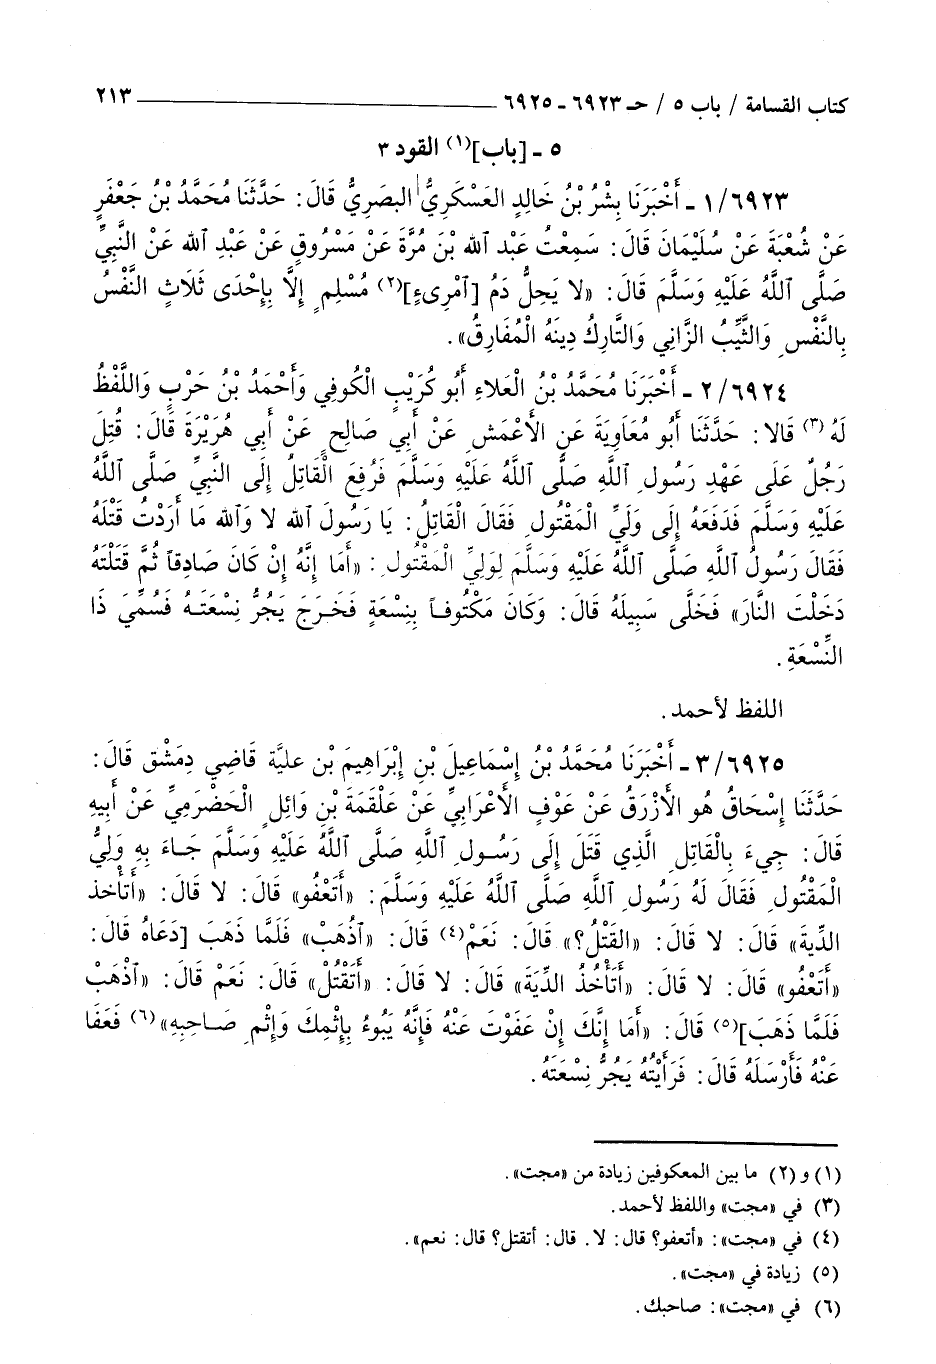 كتاب القسامة / باب ٥ / حـ ٦٩٢٣ - ٦٩٢٥ ٢١٣
٥ - [باب](١) القود ٣
١/٦٩٢٣ - أَخْبَرَنَا بِشْرُ بْنُ خَالِدٍ العَسْكَرِيُّ البَصَرِيُّ قَالَ: حَدَّثَنَا مُحَمَّدُ بْنُ جَعْفَرٍ
عَنْ شُعْبَةَ عَنْ سُلَيْمَانَ قَالَ: سَمِعْتُ عَبْدَ الله بْنَ مُرَّةَ عَنْ مَسْرُوقٍ عَنْ عَبْدِ الله عَنْ النَّبِيِّ
صَلَّى ٱللَّهُ عَلَيْهِ وَسَلَّمَ قَالَ: «لا يَحِلُّ دَمُ [ٱمْرِىءٍ](٢) مُسْلِمٍ إِلَّا بِإِحْدَى ثَلَاثٍ النَّفْسُ
بِالنَّفْسِ وَالثَّيِّبُ الزَّانِي وَالتَّارِكُ دِينَهُ الْمُفَارِقُ».
٢/٦٩٢٤ - أَخْبَرَنَا مُحَمَّدُ بْنُ الْعَلاءِ أَبُو كُرَيْبٍ الْكُوفِي وَأَحْمَدُ بْنُ حَرْبٍ وَاللَّفْظُ
لَهُ (٣) قَالا: حَدَّثَنَا أَبُو مُعَاوِيَةَ عَنِ الأَعْمَشِ عَنْ أَبِي صَالِحٍ عَنْ أَبِي هُرَيْرَةَ قَالَ: قُتِلَ
رَجُلٌ عَلَى عَهْدِ رَسُولِ ٱللَّهِ صَلَّى ٱللَّهُ عَلَيْهِ وَسَلَّمَ فَرُفِعَ الْقَاتِلُ إِلَى النَّبِيِّ صَلَّى ٱللَّهُ
عَلَيْهِ وَسَلَّمَ فَدَفَعَهُ إِلَى وَلِيِّ الْمَقْتُولِ فَقَالَ الْقَاتِلُ: يَا رَسُولَ الله لا وَالله مَا أَرَدْتُ قَتْلَهُ
فَقَالَ رَسُولُ اللَّهِ صَلَّى ٱللَّهُ عَلَيْهِ وَسَلَّمَ لِوَلِيِّ الْمَقْتُولِ: «أَمَا إِنَّهُ إِنْ كَانَ صَادِقاً ثُمَّ قَتَلْتَهُ
دَخَلْتَ النَّارَ» فَخَلَّى سَبِيلَهُ قَالَ: وَكَانَ مَكْتُوفاً بِنِسْعَةٍ فَخَرَجَ يَجُرُّ نِسْعَتَهُ فَسُمِّيَ ذَا
النِّسْعَةِ.
اللفظ لأحمد.
٣/٦٩٢٥ - أَخْبَرَنَا مُحَمَّدُ بْنُ إِسْمَاعِيلَ بْنِ إِبْرَاهِيمَ بْنِ عليَّة قَاضِي دِمَشْق قَالَ:
حَدَّثَنَا إِسْحَاقُ هُو الأَزْرَقُ عَنْ عَوْفٍ الأَعْرَابِيِّ عَنْ عَلْقَمَةَ بْنِ وَائِلٍ الْحَضْرَمِيِّ عَنْ أَبِيهِ
قَالَ: جِيءَ بِالْقَاتِلِ الَّذِي قَتَلَ إِلَى رَسُولِ ٱللَّهِ صَلَّى ٱللَّهُ عَلَيْهِ وَسَلَّمَ جَاءَ بِهِ وَلِيُّ
الْمَقْتُولِ فَقَالَ لَهُ رَسُولِ ٱللَّهِ صَلَّى ٱللَّهُ عَلَيْهِ وَسَلَّمَ: «أَتَعْفُو» قَالَ: لا قَالَ: «أَتَأْخذ
الدِّيةَ» قَالَ: لا قَالَ: «القَتْلُ؟» قَالَ: نَعَمْ(٤) قَالَ: «ٱذْهَبْ» فَلَمَّا ذَهَبَ [دَعَاهُ قَالَ:
«أَتَعْفُو» قَالَ: لا قَالَ: «أَتَأْخُذُ الدِّيَةَ» قَالَ: لا قَالَ: «أَتَقْتُلْ» قَالَ: نَعَمْ قَالَ: «ٱذْهَبْ
فَلَمَّا ذَهَبَ](٥) قَالَ: «أَمَا إِنَّكَ إِنْ عَفَوْتَ عَنْهُ فَإِنَّهُ يَبُوءُ بِإِثْمِكَ وَإِثْمِ صَاحِبِهِ»(٦) فَعَفَا
عَنْهُ فَأَرْسَلَهُ قَالَ: فَرَأَيْتُهُ يَجُرُّ نِسْعَتَهُ.
(١) و (٢) ما بين المعكوفين زيادة من «مجت».
(٣) في «مجت» واللفظ لأحمد.
(٤) في «مجت»: «أتعفو؟ قال: لا. قال: أتقتل؟ قال: نعم».
(٥) زيادة في «مجت».
(٦) في «مجت»: صاحبك.